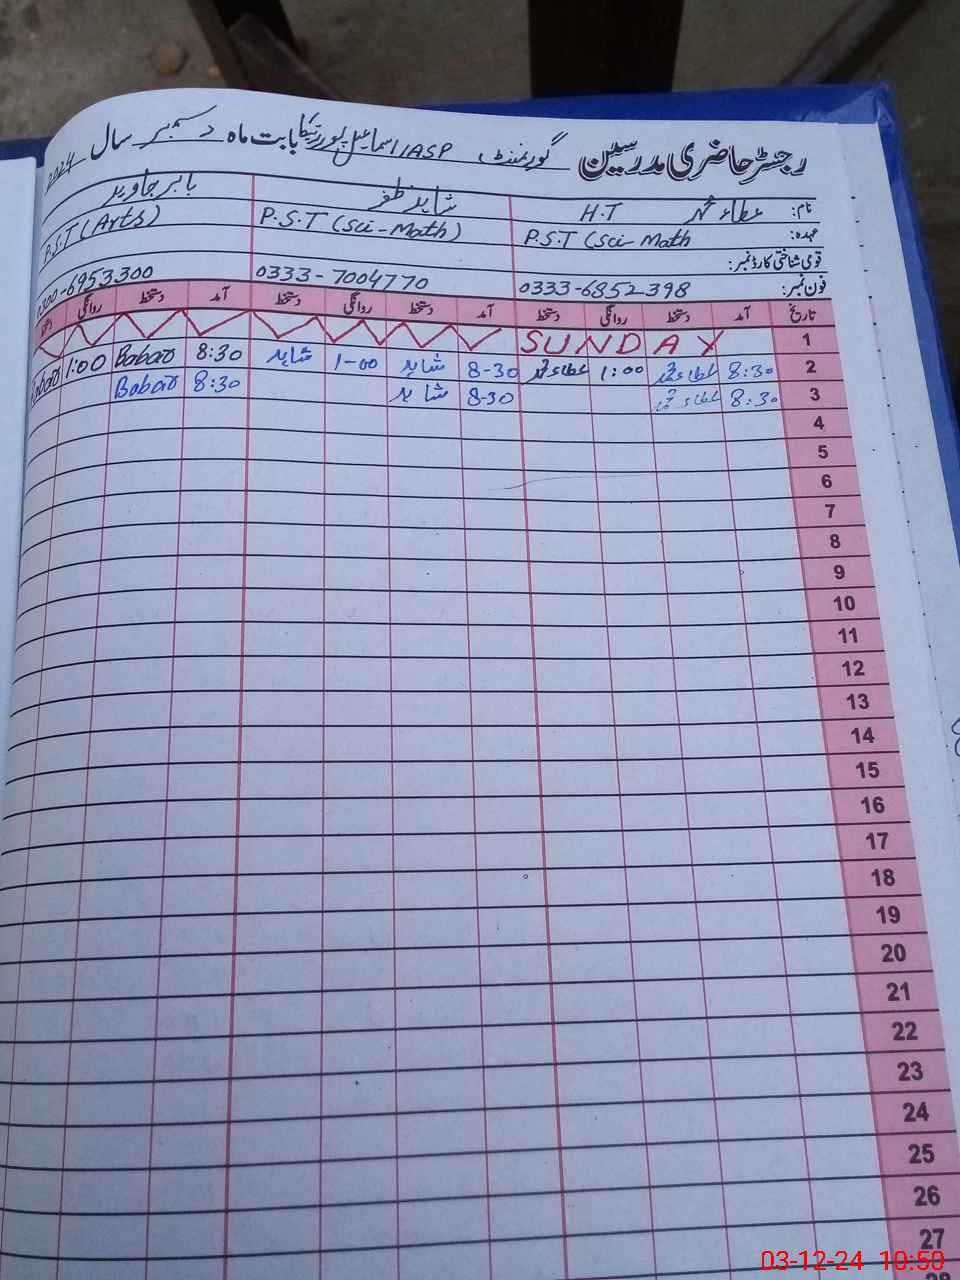 رجسٹر حاضری مدرسین گورنمنٹ ASP/اسماعیل پور بابت ماہ دسمبر سال 2024
نام: عطاء محمد H.T شاہد ظفر بابر جاوید
عہدہ: P.S.T (Sci-Math P.S.T (Sci-Math) P.S.T (Arts)
قومی شناختی کارڈ نمبر:
فون نمبر: 0333-6852398 0333-7004770 0300-6953300
تاریخ آمد دستخط روانگی دستخط آمد دستخط روانگی دستخط آمد دستخط روانگی
1 SUNDAY
2 8:30 عطاء محمد 1:00 عطاء محمد 8-30 شاہد 1-00 شاہد 8:30 Babar 1:00 Babar
3 8:30 عطاء محمد 8-30 شاہد 8:30 Babar
4
5
6
7
8
9
10
11
12
13
14
15
16
17
18
19
20
21
22
23
24
25
26
27
28
03-12-24 10:50